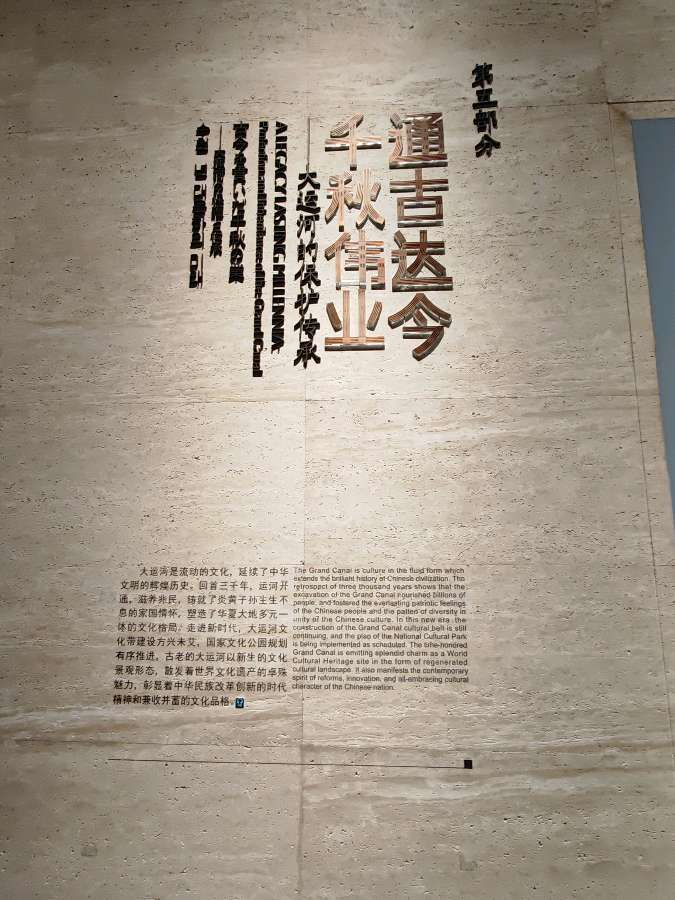 第五部分
通古达今
千秋伟业
——大运河的保护传承
A LEGACY LASTING MILLENNIA:
Protection and Inheritance of the Grand Canal
大运河是流动的文化，延续了中华
文明的辉煌历史。回首三千年，运河开
通，滋养兆民，铸就了炎黄子孙生生不
息的家国情怀，塑造了华夏大地多元一
体的文化格局。走进新时代，大运河文
化带建设方兴未艾，国家文化公园规划
有序推进，古老的大运河以新生的文化
景观形态，散发着世界文化遗产的卓殊
魅力，彰显着中华民族改革创新的时代
精神和兼收并蓄的文化品格。
The Grand Canal is culture in the fluid form which
extends the brilliant history of Chinese civilization. The
retrospect of three thousand years shows that the
excavation of the Grand Canal nourished billions of
people, and fostered the everlasting patriotic feelings
of the Chinese people and the pattern of diversity in
unity of the Chinese culture. In this new era, the
construction of the Grand Canal cultural belt is still
continuing, and the plan of the National Cultural Park
is being implemented as scheduled. The time-honored
Grand Canal is emitting splendid charm as a World
Cultural Heritage site in the form of regenerated
cultural landscape. It also manifests the contemporary
spirit of reforms, innovation, and all-embracing cultural
character of the Chinese nation.